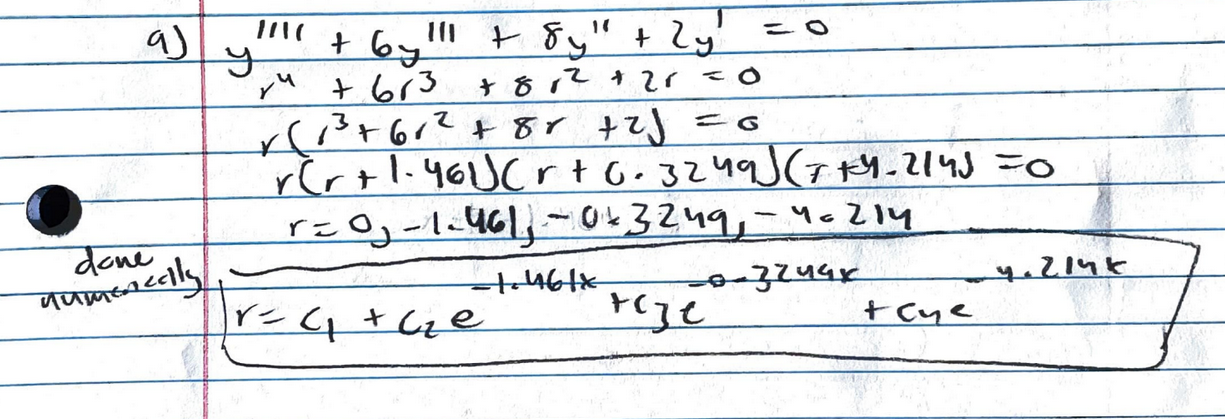 a) y'''' + 6y''' + 8y'' + 2y' = 0
r⁴ + 6r³ + 8r² + 2r = 0
r(r³ + 6r² + 8r + 2) = 0
r(r + 1.461)(r + 0.3249)(r + 4.214) = 0
r = 0, -1.461, -0.3249, -4.214
done numerically
r = c₁ + c₂e^-1.461x + c₃e^-0.3249x + c₄e^-4.214x